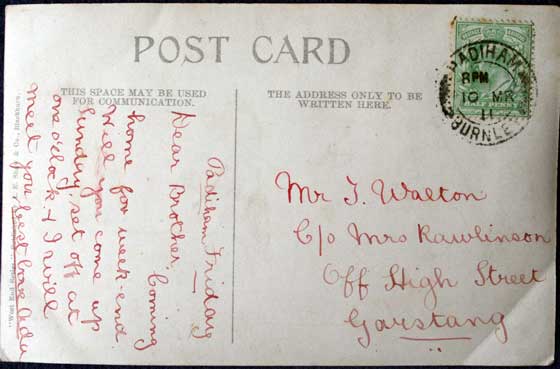 POST CARD
THIS SPACE MAY BE USED
FOR COMMUNICATION.
THE ADDRESS ONLY TO BE
WRITTEN HERE.
PADIHAM
8 PM
10 MR
11
BURNLE
HALF PENNY
Padiham Friday
Dear Brother. Coming
home for week-end
will you come up
Sunday, set off at
one o'clock & I will
meet you best love Ada
Mr J. Walton
C/o Mrs Rawlinson
Off High Street
Garstang
"West End Series"
& Co., Blackburn.